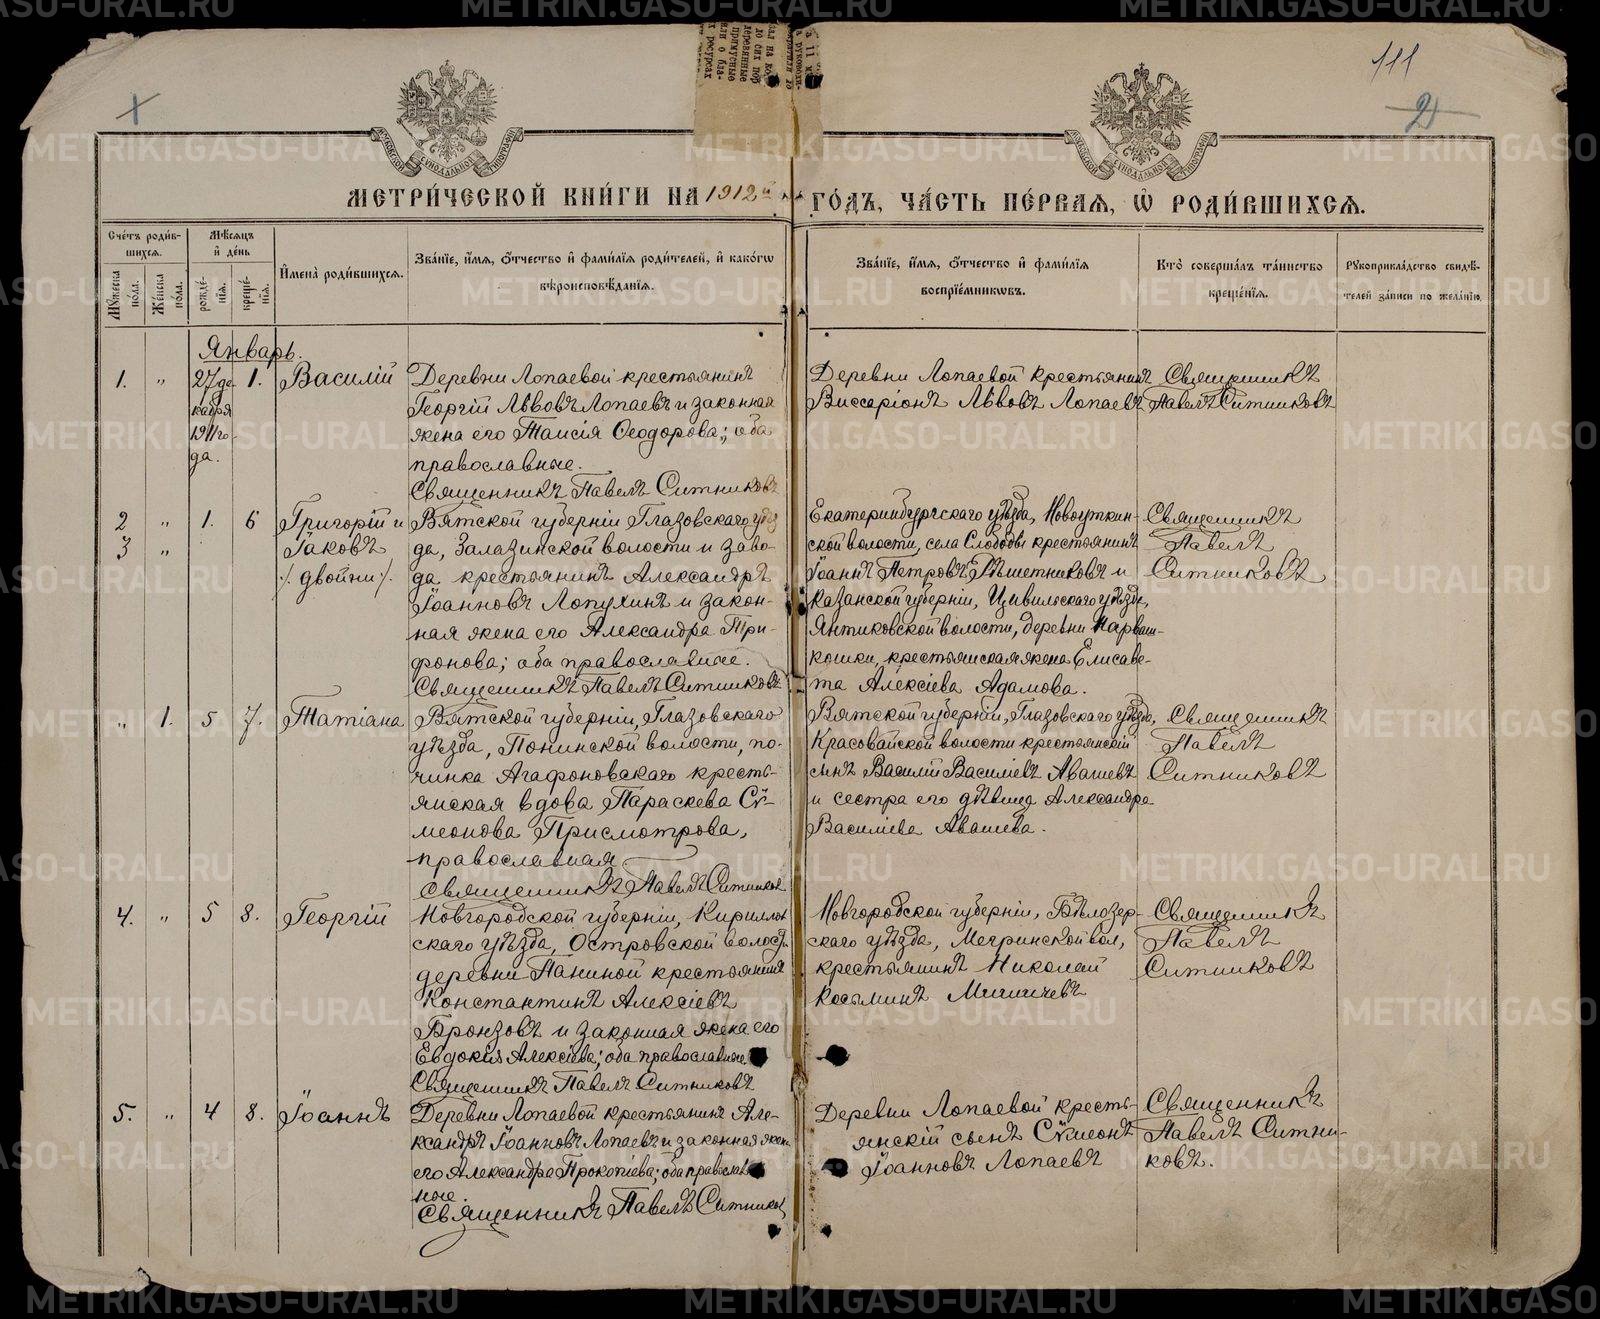 111
2
МЕТРИ́ЧЕСКОЙ КНИ́ГИ НА 1912й ГО́ДЪ, ЧА́СТЬ ПЕ́РВАЯ, Ѡ РОДИ́ВШИХСЯ.
Сче́тъ роди́в-
шихся.
Му́жеска по́ла.
Же́нска по́ла.
Мѣ́сяцъ
и де́нь
рожде́-
нїя.
креще́-
нїя.
Имена̀ роди́вшихся.
Зва́нїе, и́мя, о́тчество и фами́лїя роди́телей, и како́гѡ
вѣроисповѣ́данїя.
Зва́нїе, и́мя, о́тчество и фами́лїя
воспрїе́мниковъ.
Кто̀ соверша́лъ та́инство
креще́нїя.
Рукоприкла́дство свидѣ́-
телей за́писи по жела́нїю.
Январь.
1. „ 27 де-
кабря
1911 го-
да.
1. Василій
Деревни Лопаевой крестьянинъ
Георгій Львовъ Лопаевъ и законная
жена его Таисія Ѳеодорова; оба
православные.
Священникъ Павелъ Ситниковъ
Деревни Лопаевой крестьянинъ
Виссаріонъ Львовъ Лопаевъ
Священникъ
Павелъ Ситниковъ
2 „ 1. 6 Григорій и
3 „ Іаковъ
/. двойни ./
Вятской губерніи Глазовскаго уѣз-
да, Залазинской волости и заво-
да крестьянинъ Александръ
Іоанновъ Лопухинъ и закон-
ная жена его Александра Три-
фонова; оба православные.
Священникъ Павелъ Ситниковъ
Екатеринбургскаго уѣзда, Новоуткин-
ской волости, села Слободы крестьянинъ
Іоаннъ Петровъ Рѣшетниковъ и
Казанской губерніи, Цивильскаго уѣзда,
Янтиковской волости, деревни
кошки, крестьянская жена Елисаве-
та Алексіева Адамова.
Священникъ
Павелъ
Ситниковъ
„ 1. 5 7. Татіана
Вятской губерніи, Глазовскаго
уѣзда, Понинской волости, по-
чинка Агафоновскаго кресть-
янская вдова Параскева Сѵ-
меонова Присмотрова,
православная
Священникъ Павелъ Ситников
Вятской губерніи, Глазовскаго уѣзда,
волости крестьянскій
сынъ Василій Василіевъ Авашевъ
и сестра его дѣвица Александра
Василіева Авашева.
Священникъ
Павелъ
Ситниковъ
4. „ 5 8. Георгій
Новгородской губерніи, Кириллов
скаго уѣзда, Островской волости
деревни Паниной крестьянинъ
Константинъ Алексіевъ
Бронзовъ и законная жена его
Евдокія Алексіева; оба православные.
Священникъ Павелъ Ситниковъ
Новгородской губерніи, Бѣлозер-
скаго уѣзда, Мегринской вол,
крестьянинъ Николай
Косьминъ
Священникъ
Павелъ
Ситниковъ
5. „ 4 8. Іоаннъ
Деревни Лопаевой крестьянинъ Але-
ксандръ Іоанновъ Лопаевъ и законная жена
его Александра Прокопіева; оба православ
ные.
Священникъ Павелъ Ситников
Деревни Лопаевой кресть-
янскій сынъ Сѵмеонъ
Іоанновъ Лопаевъ
Священникъ
Павелъ Ситни-
ковъ.